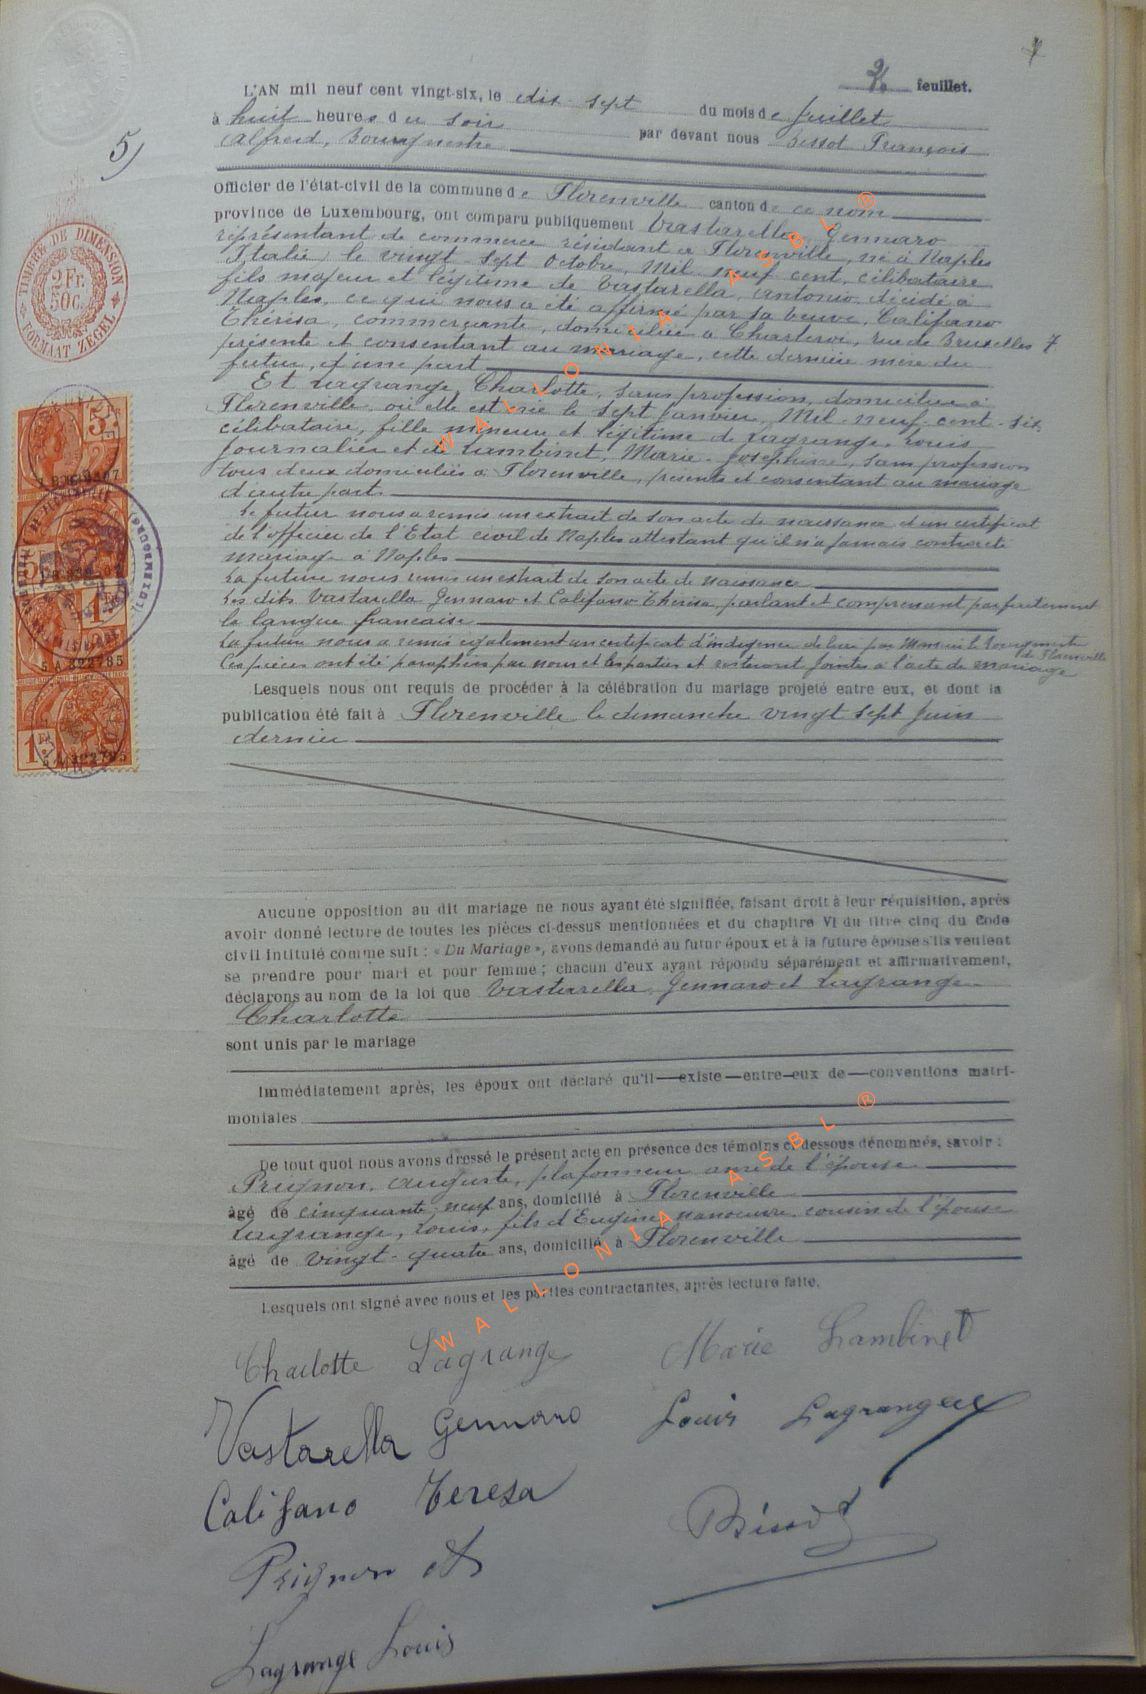 7
5)
L'AN mil neuf cent vingt-six, le dix-sept du mois de Juillet
feuillet.
à huit heures du soir par devant nous Bessot François
Alfred, Bourgmestre
Officier de l'état-civil de la commune de Florenville canton de ce nom
province de Luxembourg, ont comparu publiquement Vastarella, Gennaro
représentant de commerce résidant à Florenville, né à Naples
Italie, le vingt-sept Octobre, Mil neuf cent, célibataire
fils majeur et légitime de Vastarella, Antonio, décédé à
Naples, ce qui nous a été affirmé par sa veuve, Califano
Thérésa, commerçante, domiciliée à Charleroi, rue de Bruxelles 7
présente et consentant au mariage, cette dernière mère du
futur, d'une part
Et Lagrange, Charlotte, sans profession, domiciliée à
Florenville où elle est née le sept Janvier, Mil-neuf-cent-six
célibataire, fille mineure et légitime de Lagrange, Louis
Journalier et de Lambinet, Marie-Joséphine, sans profession
tous deux domiciliés à Florenville, présents et consentant au mariage
d'autre part
Le futur nous a remis un extrait de son acte de naissance et un certificat
de l'officier de l'Etat civil de Naples attestant qu'il n'a jamais contracté
mariage à Naples
La future nous remis un extrait de son acte de naissance
Les dits Vastarella Gennaro et Califano Thérésa, parlant et comprenant parfaitement
la langue française
La future nous a remis également un certificat d'indigence délivré par Monsieur le Bourgmestre
de Florenville
Ces pièces ont été paraphées par nous et les parties et resteront jointes à l'acte de mariage
Lesquels nous ont requis de procéder à la célébration du mariage projeté entre eux, et dont la
publication été fait à Florenville le dimanche vingt sept Juin
dernier
Aucune opposition au dit mariage ne nous ayant été signifiée, faisant droit à leur réquisition, après
avoir donné lecture de toutes les pièces ci-dessus mentionnées et du chapitre VI du titre cinq du Code
civil intitulé comme suit : « Du Mariage », avons demandé au futur époux et à la future épouse s'ils veulent
se prendre pour mari et pour femme ; chacun d'eux ayant répondu séparément et affirmativement,
déclarons au nom de la loi que Vastarella, Gennaro et Lagrange
Charlotte
sont unis par le mariage
Immédiatement après, les époux ont déclaré qu'il existe entre eux de conventions matri-
moniales
De tout quoi nous avons dressé le présent acte en présence des témoins ci-dessous dénommés, savoir :
Prignon, Auguste, plafonneur ami de l'épouse
âgé de cinquante-neuf ans, domicilié à Florenville
Lagrange, Louis, fils d'Eugène, manoeuvre, cousin de l'épouse
âgé de vingt-quatre ans, domicilié à Florenville
Lesquels ont signé avec nous et les parties contractantes, après lecture faite.
Charlotte Lagrange
Marie Lambinet
Vastarella Gennaro
Louis Lagrange
Califano Teresa
Bessot
Prignon
Lagrange Louis
TIMBRE DE DIMENSION
2 Fr.
50 C.
FORMAAT ZEGEL
5 A 322785
5 A 322785
WALLONIA ASBL ®
WALLONIA ASBL ®